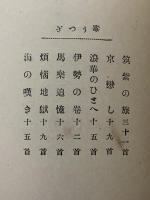 寄うつぎ
筑紫の旅三十一首
京戀し十九首
浪華のひさへ十五首
伊勢の卷十二首
馬樂追憶十六首
煩惱地獄十九首
海の嘆き十五首